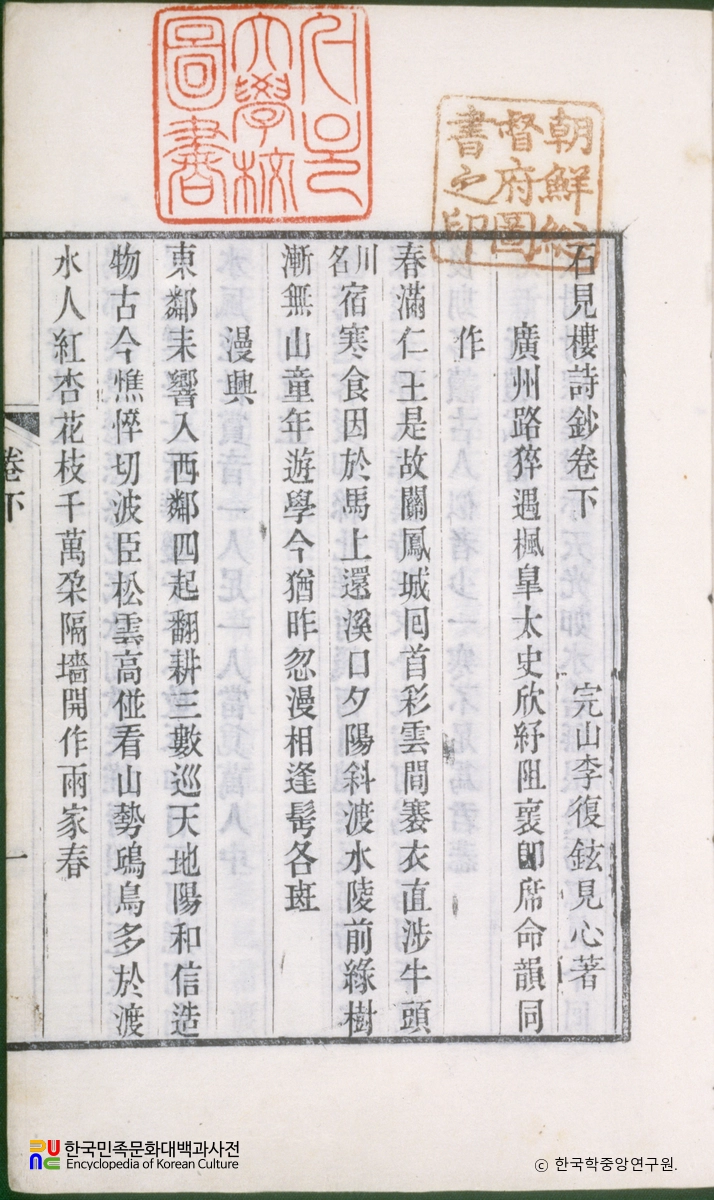 서울
大學校
圖書
朝鮮總
督府圖
書之印
石見樓詩鈔卷下 完山李復鉉見心著
廣州路猝遇楓皐太史欣紓阻襄卽席命韻同
作
春滿仁王是故關鳳城回首彩雲間褰衣直涉牛頭
川名宿寒食因於馬上還溪口夕陽斜渡水陵前綠樹
漸無山童年遊學今猶昨忽漫相逢髩各斑
漫興
東鄰耒響入西鄰四起翻耕三數巡天地陽和信造
物古今憔悴切波臣松雲高碰看山勢鴎鳥多於渡
水人紅杏花枝千萬朶隔墻開作兩家春
卷下
一
한국민족문화대백과사전
Encyclopedia of Korean Culture
© 한국학중앙연구원.